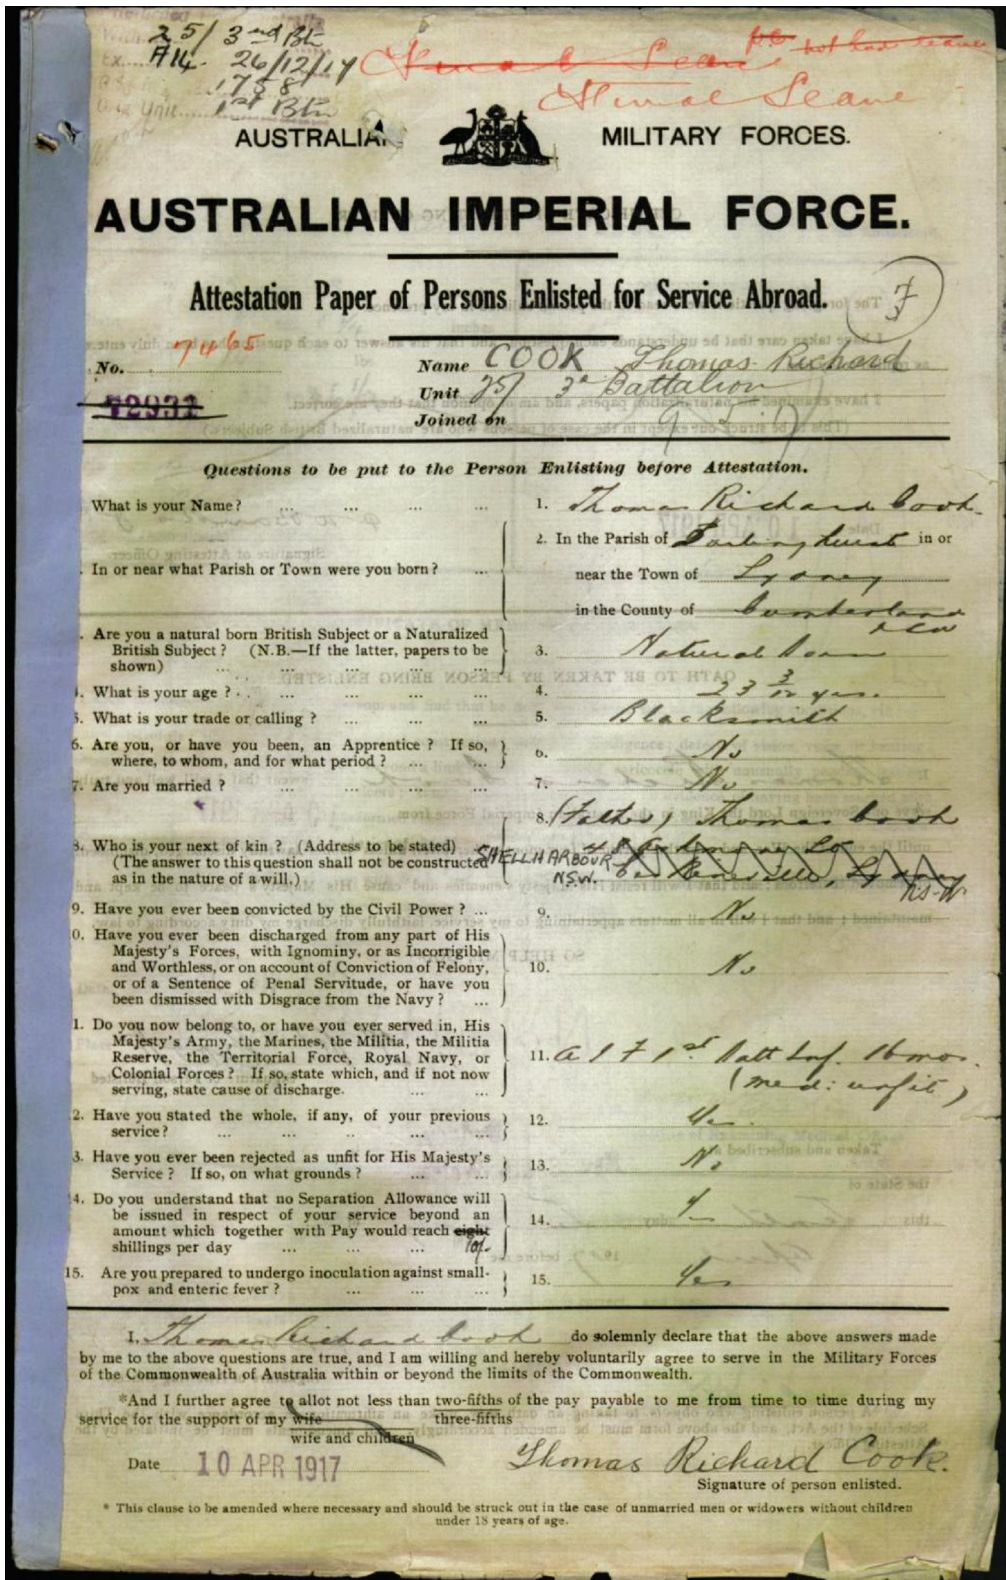 25/ 3rd Btn
A14. 26/12/17
1758
1st Btn
not had leave
Final Leave
Final Leave
AUSTRALIAN MILITARY FORCES.
AUSTRALIAN IMPERIAL FORCE.
Attestation Paper of Persons Enlisted for Service Abroad.
7465
No.
72931
Name COOK Thomas Richard
Unit 25/ 3rd Battalion
Joined on 9.5.17
Questions to be put to the Person Enlisting before Attestation.
What is your Name? ... ... ... ... 1. Thomas Richard Cook.
In or near what Parish or Town were you born? ... 2. In the Parish of Darlinghurst in or
near the Town of Sydney
in the County of Cumberland
NSW
. Are you a natural born British Subject or a Naturalized
British Subject? (N.B.—If the latter, papers to be
shown) ... ... ... ... ... 3. Natural born
. What is your age? . . ... ... ... 4. 23 3/12 yrs.
. What is your trade or calling? ... ... ... 5. Blacksmith
6. Are you, or have you been, an Apprentice? If so,
where, to whom, and for what period? ... ... 6. No
7. Are you married? ... ... ... ... 7. No
8. (Father) Thomas Cook
8. Who is your next of kin? (Address to be stated)
(The answer to this question shall not be constructed
as in the nature of a will.)
SHELLHARBOUR
N.S.W. Sydney
N.S.W
9. Have you ever been convicted by the Civil Power? ... 9. No
0. Have you ever been discharged from any part of His
Majesty's Forces, with Ignominy, or as Incorrigible
and Worthless, or on account of Conviction of Felony,
or of a Sentence of Penal Servitude, or have you
been dismissed with Disgrace from the Navy? ... 10. No
1. Do you now belong to, or have you ever served in, His
Majesty's Army, the Marines, the Militia, the Militia
Reserve, the Territorial Force, Royal Navy, or
Colonial Forces? If so, state which, and if not now
serving, state cause of discharge. ... ... 11. A I F 1st Batt Inf. 16 mos.
(med: unfit)
2. Have you stated the whole, if any, of your previous
service? ... ... .. ... ... 12. Yes.
3. Have you ever been rejected as unfit for His Majesty's
Service? If so, on what grounds? ... ... 13. No
4. Do you understand that no Separation Allowance will
be issued in respect of your service beyond an
amount which together with Pay would reach eight
shillings per day ... ... ... 10/- 14. Y
15. Are you prepared to undergo inoculation against small-
pox and enteric fever? ... ... ... 15. Yes
I, Thomas Richard Cook do solemnly declare that the above answers made
by me to the above questions are true, and I am willing and hereby voluntarily agree to serve in the Military Forces
of the Commonwealth of Australia within or beyond the limits of the Commonwealth.
*And I further agree to allot not less than two-fifths of the pay payable to me from time to time during my
three-fifths
service for the support of my wife
wife and children
Date 10 APR 1917
Thomas Richard Cook.
Signature of person enlisted.
* This clause to be amended where necessary and should be struck out in the case of unmarried men or widowers without children
under 18 years of age.